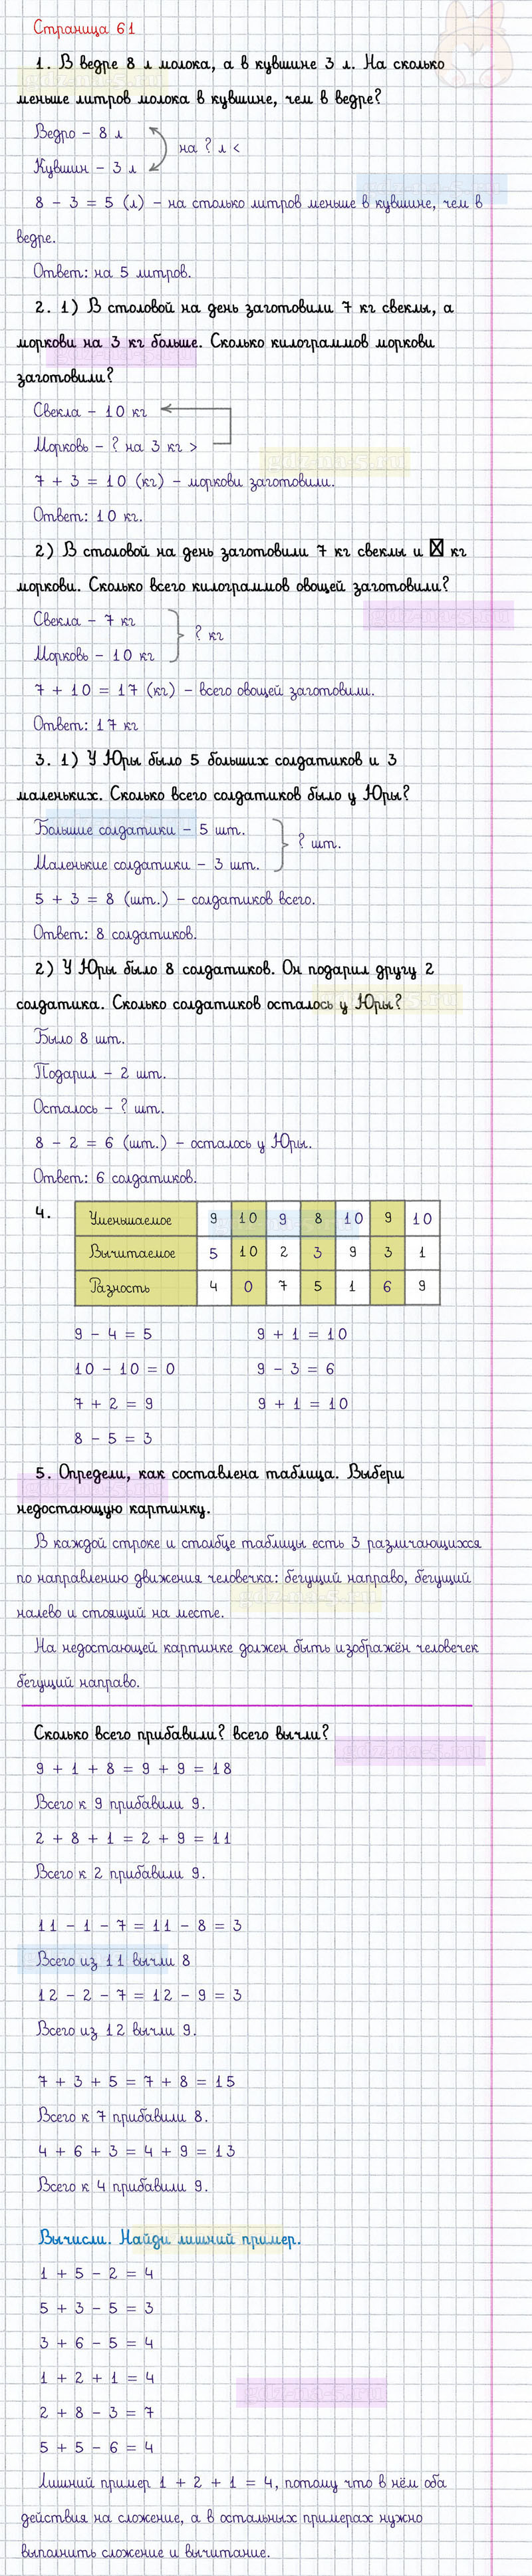 Страница 61
1. В ведре 8 л молока, а в кувшине 3 л. На сколько
меньше литров молока в кувшине, чем в ведре?
Ведро – 8 л
на ? л <
Кувшин – 3 л
8 – 3 = 5 (л) – на столько литров меньше в кувшине, чем в
ведре.
Ответ: на 5 литров.
2. 1) В столовой на день заготовили 7 кг свеклы, а
моркови на 3 кг больше. Сколько килограммов моркови
заготовили?
Свекла – 10 кг
Морковь – ? на 3 кг >
7 + 3 = 10 (кг) – моркови заготовили.
Ответ: 10 кг.
2) В столовой на день заготовили 7 кг свеклы и ☒ кг
моркови. Сколько всего килограммов овощей заготовили?
Свекла – 7 кг
? кг
Морковь – 10 кг
7 + 10 = 17 (кг) – всего овощей заготовили.
Ответ: 17 кг
3. 1) У Юры было 5 больших солдатиков и 3
маленьких. Сколько всего солдатиков было у Юры?
Большие солдатики – 5 шт.
? шт.
Маленькие солдатики – 3 шт.
5 + 3 = 8 (шт.) – солдатиков всего.
Ответ: 8 солдатиков.
2) У Юры было 8 солдатиков. Он подарил другу 2
солдатика. Сколько солдатиков осталось у Юры?
Было 8 шт.
Подарил – 2 шт.
Осталось – ? шт.
8 – 2 = 6 (шт.) – осталось у Юры.
Ответ: 6 солдатиков.
4.
Уменьшаемое 9 10 9 8 10 9 10
Вычитаемое 5 10 2 3 9 3 1
Разность 4 0 7 5 1 6 9
9 – 4 = 5 9 + 1 = 10
10 – 10 = 0 9 – 3 = 6
7 + 2 = 9 9 + 1 = 10
8 – 5 = 3
5. Определи, как составлена таблица. Выбери
недостающую картинку.
В каждой строке и столбце таблицы есть 3 различающихся
по направлению движения человечка: бегущий направо, бегущий
налево и стоящий на месте.
На недостающей картинке должен быть изображён человечек
бегущий направо.
Сколько всего прибавили? всего вычли?
9 + 1 + 8 = 9 + 9 = 18
Всего к 9 прибавили 9.
2 + 8 + 1 = 2 + 9 = 11
Всего к 2 прибавили 9.
11 – 1 – 7 = 11 – 8 = 3
Всего из 11 вычли 8
12 – 2 – 7 = 12 – 9 = 3
Всего из 12 вычли 9.
7 + 3 + 5 = 7 + 8 = 15
Всего к 7 прибавили 8.
4 + 6 + 3 = 4 + 9 = 13
Всего к 4 прибавили 9.
Вычисли. Найди лишний пример.
1 + 5 – 2 = 4
5 + 3 – 5 = 3
3 + 6 – 5 = 4
1 + 2 + 1 = 4
2 + 8 – 3 = 7
5 + 5 – 6 = 4
Лишний пример 1 + 2 + 1 = 4, потому что в нём оба
действия на сложение, а в остальных примерах нужно
выполнить сложение и вычитание.